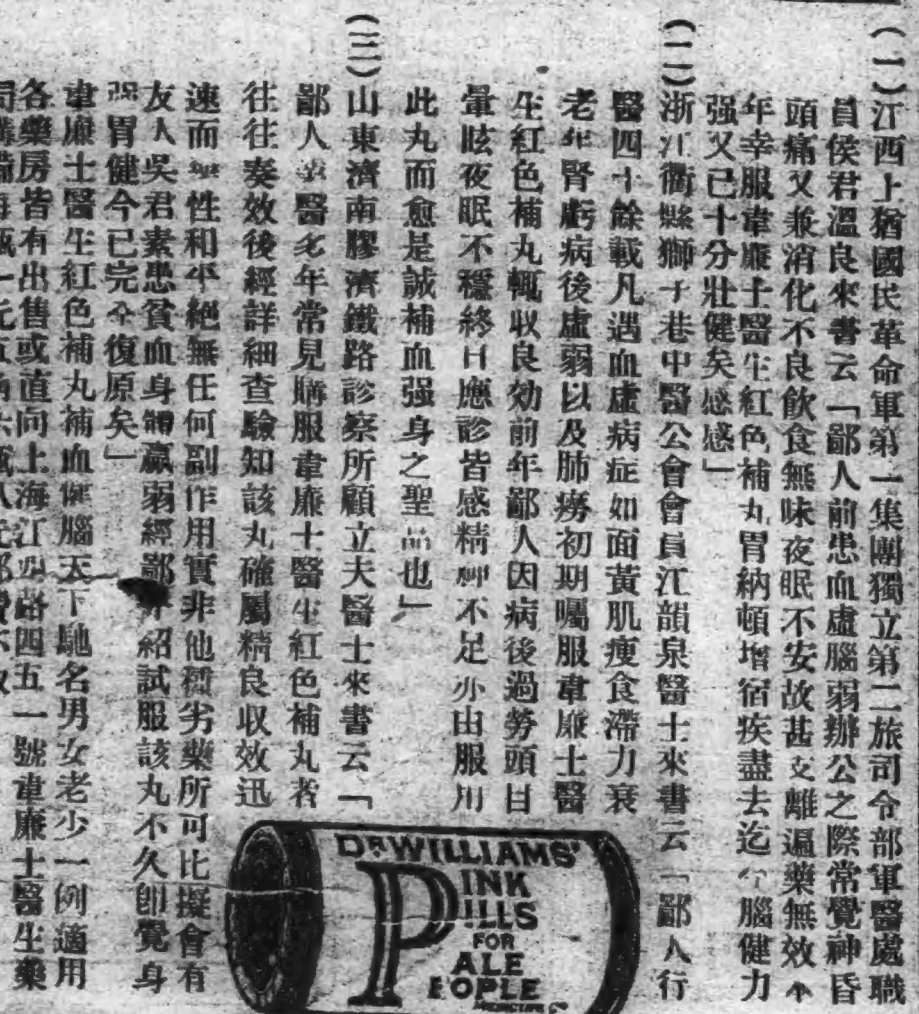 （一）江西上猶國民革命軍第一集團獨立第二旅司令部軍醫處職
員侯君溫良來書云「鄙人前患血虛腦弱辦公之際常覺神昏
頭痛又兼消化不良飲食無味夜眠不安故甚支離遍藥無效本
年幸服韋廉士醫生紅色補丸胃納頓增宿疾盡去迄今腦健力
强又已十分壯健矣感感」
（二）浙江衢縣獅子巷中醫公會會員江韻泉醫士來書云「鄙人行
醫四十餘載凡遇血虛病症如面黃肌瘦食滯力衰
老年腎虧病後虛弱以及肺癆初期囑服韋廉士醫
生紅色補丸輒収良効前年鄙人因病後過勞頭目
暈眩夜眠不穩終日應診皆感精神不足亦由服用
此丸而愈是誠補血强身之聖品也」
（三）山東濟南膠濟鐵路診察所顧立夫醫士來書云「
鄙人業醫多年常見購服韋廉士醫生紅色補丸者
往往奏效後經詳細查驗知該丸確屬精良収效迅
速而藥性和平絕無任何副作用實非他種劣藥所可比擬會有
友人吳君素患貧血身體羸弱經鄙介紹試服該丸不久卽覺身
强胃健今已完全復原矣」
韋廉士醫生紅色補丸補血健腦天下馳名男女老少一例適用
各藥房皆有出售或直向上海江西路四五一號韋廉士醫生藥
DR WILLIAMS'
PINK
PILLS
FOR
PALE
PEOPLE